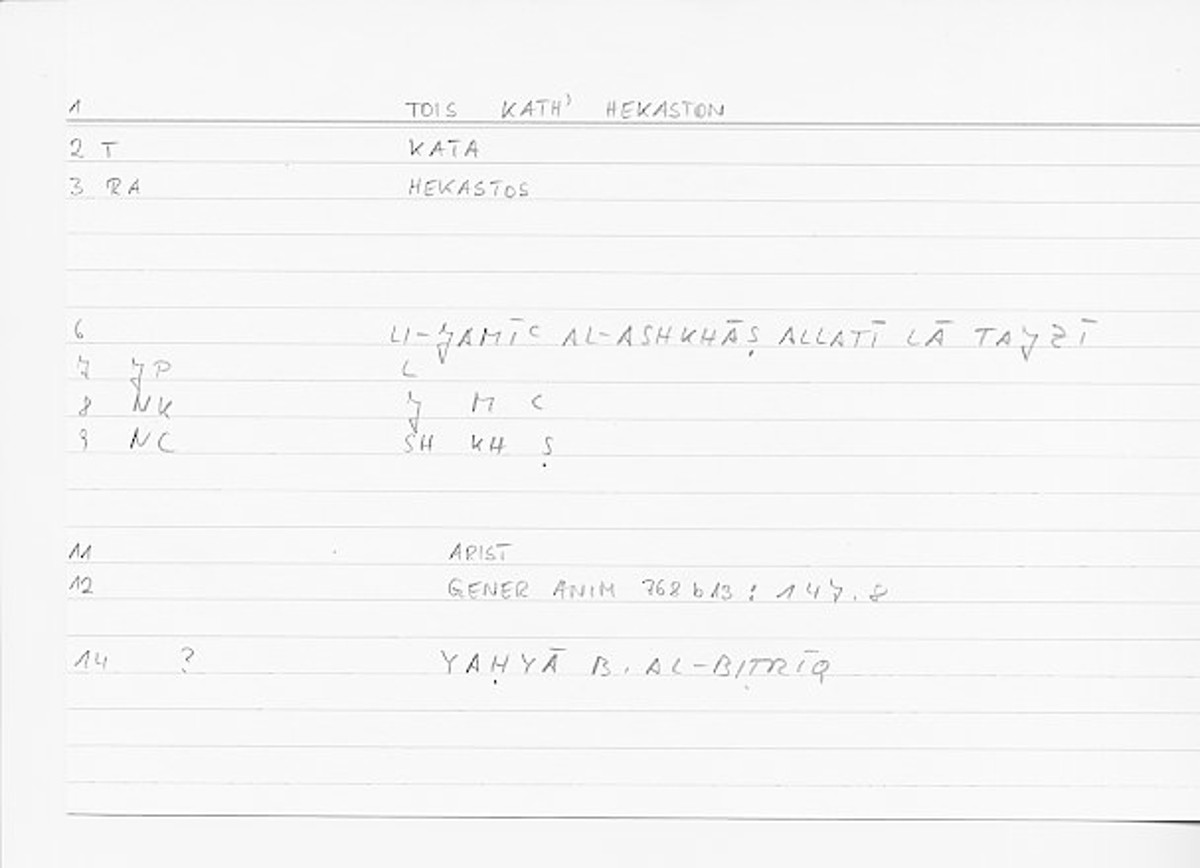 1 TOIS KATH' HEKASTON
2 T KATA
3 RA HEKASTOS
6 LI-JAMĪC AL-ASHKHĀṢ ALLATĪ LĀ TAJZĪ
7 JP L
8 NK J M C
9 NC SH KH Ṣ
11 ARIST
12 GENER ANIM 768b13 : 147.8
14 ? YAḤYĀ B. AL-BIṬRĪQ